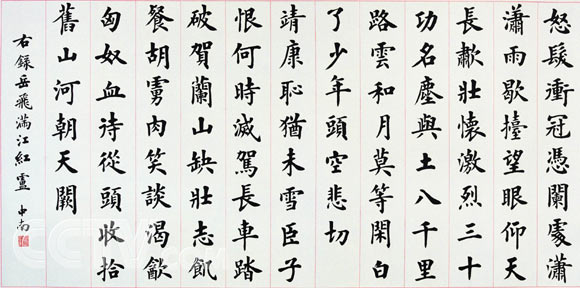 怒髮衝冠憑闌處瀟
瀟雨歇擡望眼仰天
長歗壯懷激烈三十
功名塵與土八千里
路雲和月莫等閑白
了少年頭空悲切
靖康恥猶未雪臣子
恨何時滅駕長車踏
破賀蘭山缺壯志飢
餐胡虜肉笑談渴㱃
匈奴血待從頭收拾
舊山河朝天闕
右錄岳飛滿江紅盧中南
CCTV.com